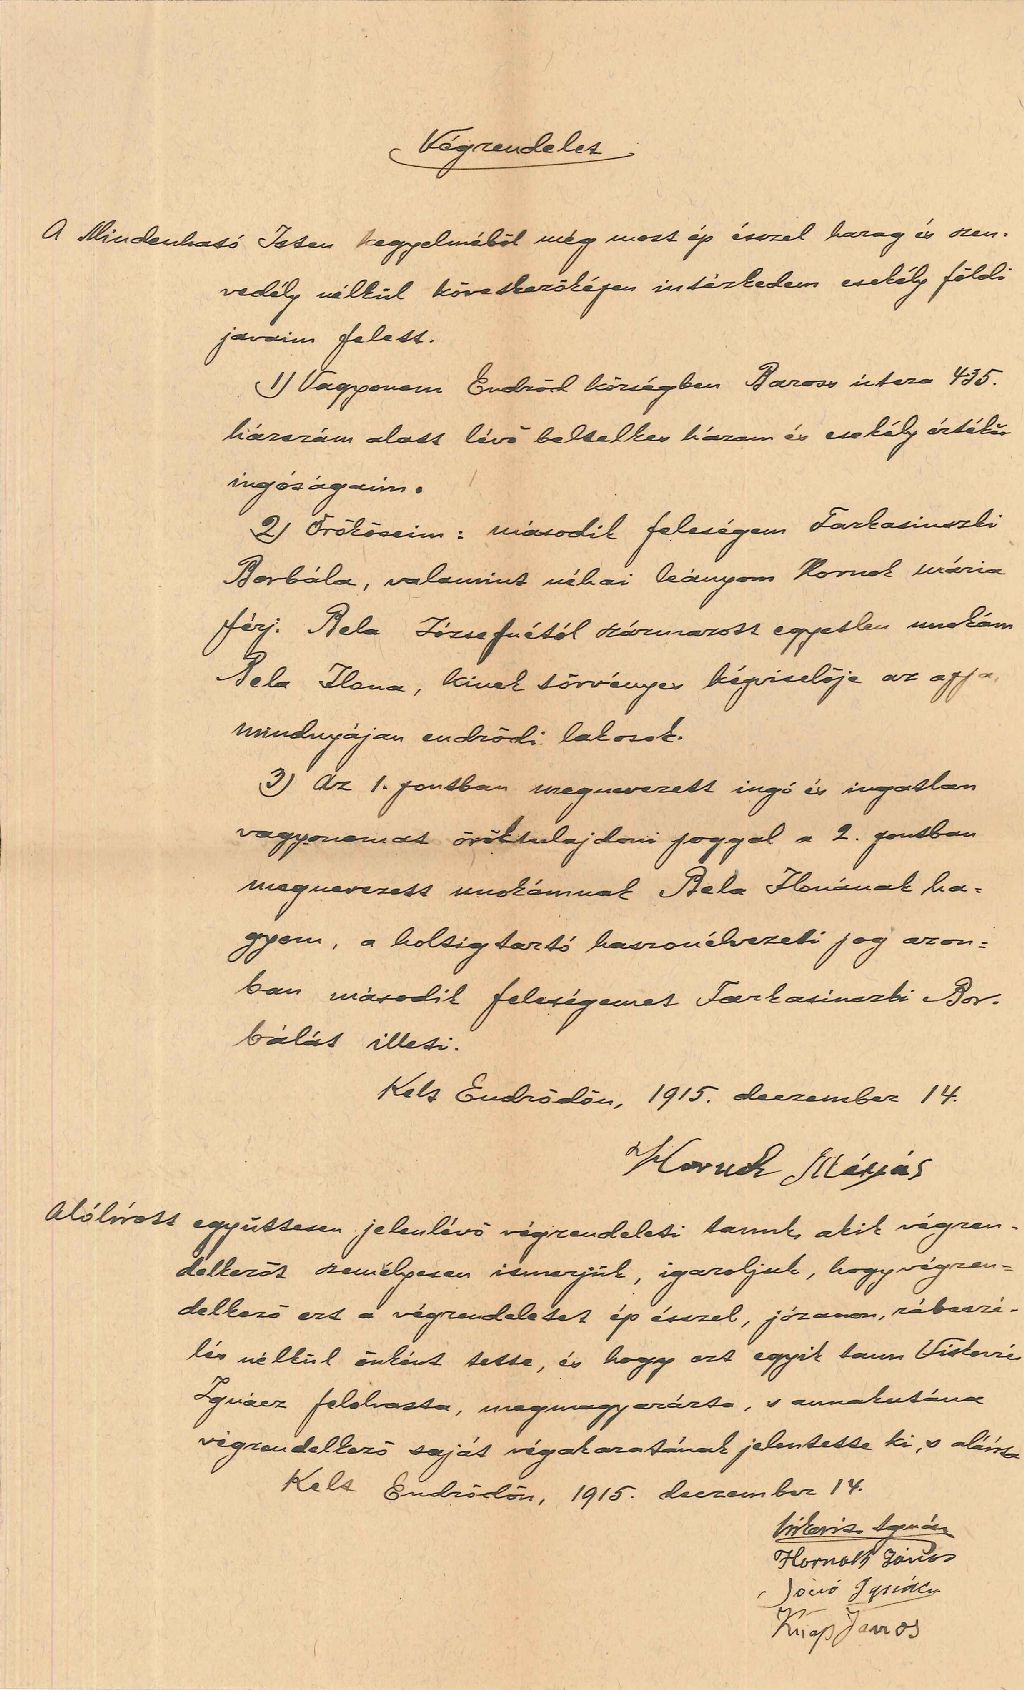 Végrendelet
A Mindenható Isten kegyelméből még most ép ésszel harag és szen-
vedély nélkül következőképen intézkedem csekély földi
javaim felett.
1) Vagyonom Endrőd községben Baross utcza 435.
házszám alatt lévő beltelkes házam és csekély értékű
ingóságaim.
2) Örököseim: második feleségem Farkasinszki
Borbála, valamint néhai leányom Hornok mária
férj. Bela Józsefnétől származott egyetlen unokám
Bela Ilona, kinek törvényes képviselője az apja,
mindnyájan endrődi lakosok.
3) Az 1. pontban megnevezett ingó és ingatlan
vagyonomat öröktulajdoni joggal a 2. pontban
megnevezett unokámnak Bela Ilonának ha-
gyom, a holtigtartó haszonélvezeti jog azon-
ban második feleségemet Farkasinszki Bor-
bálát illeti.
Kelt Endrődön, 1915. deczember 14.
Mátyás
Alólírott együttesen jelenlévő végrendeleti tanuk, akik végren-
delkezőt személyesen ismerjük, igazoljuk, hogy végren-
delkező ezt a végrendeletet ép ésszel, józanon, rábeszé-
lés nélkül önként tette, és hogy ezt egyik tanu
Ignácz felolvasta, megmagyarázta, s annakutána
végrendelkező saját végakaratának jelentette ki, s aláírta
Kelt Endrődön, 1915. deczember 14.
Ignácz
János
Ignácz
János